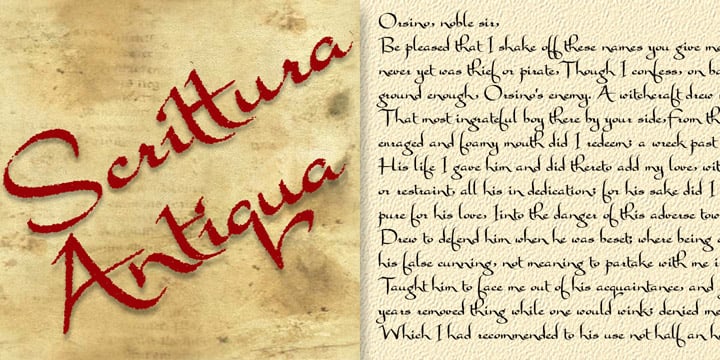 Scrittura
Antiqua
Orsino, noble sir,
Be pleased that I shake off these names you give me
never yet was thief or pirate, Though I confess, on
ground enough, Orsino's enemy. A witchcraft drew
That most ingrateful boy there by your side, from
enraged and foamy mouth did I redeem; a wreck past
His life I gave him and did thereto add my love,
or restraint, all his in dedication; for his sake did I
pure for his love, Iinto the danger of this adverse
Drew to defend him when he was beset; where being
his false cunning, not meaning to partake with me
Taught him to face me out of his acquaintance, and
years removed thing while one would wink; denied
Which I had recommended to his use not half an